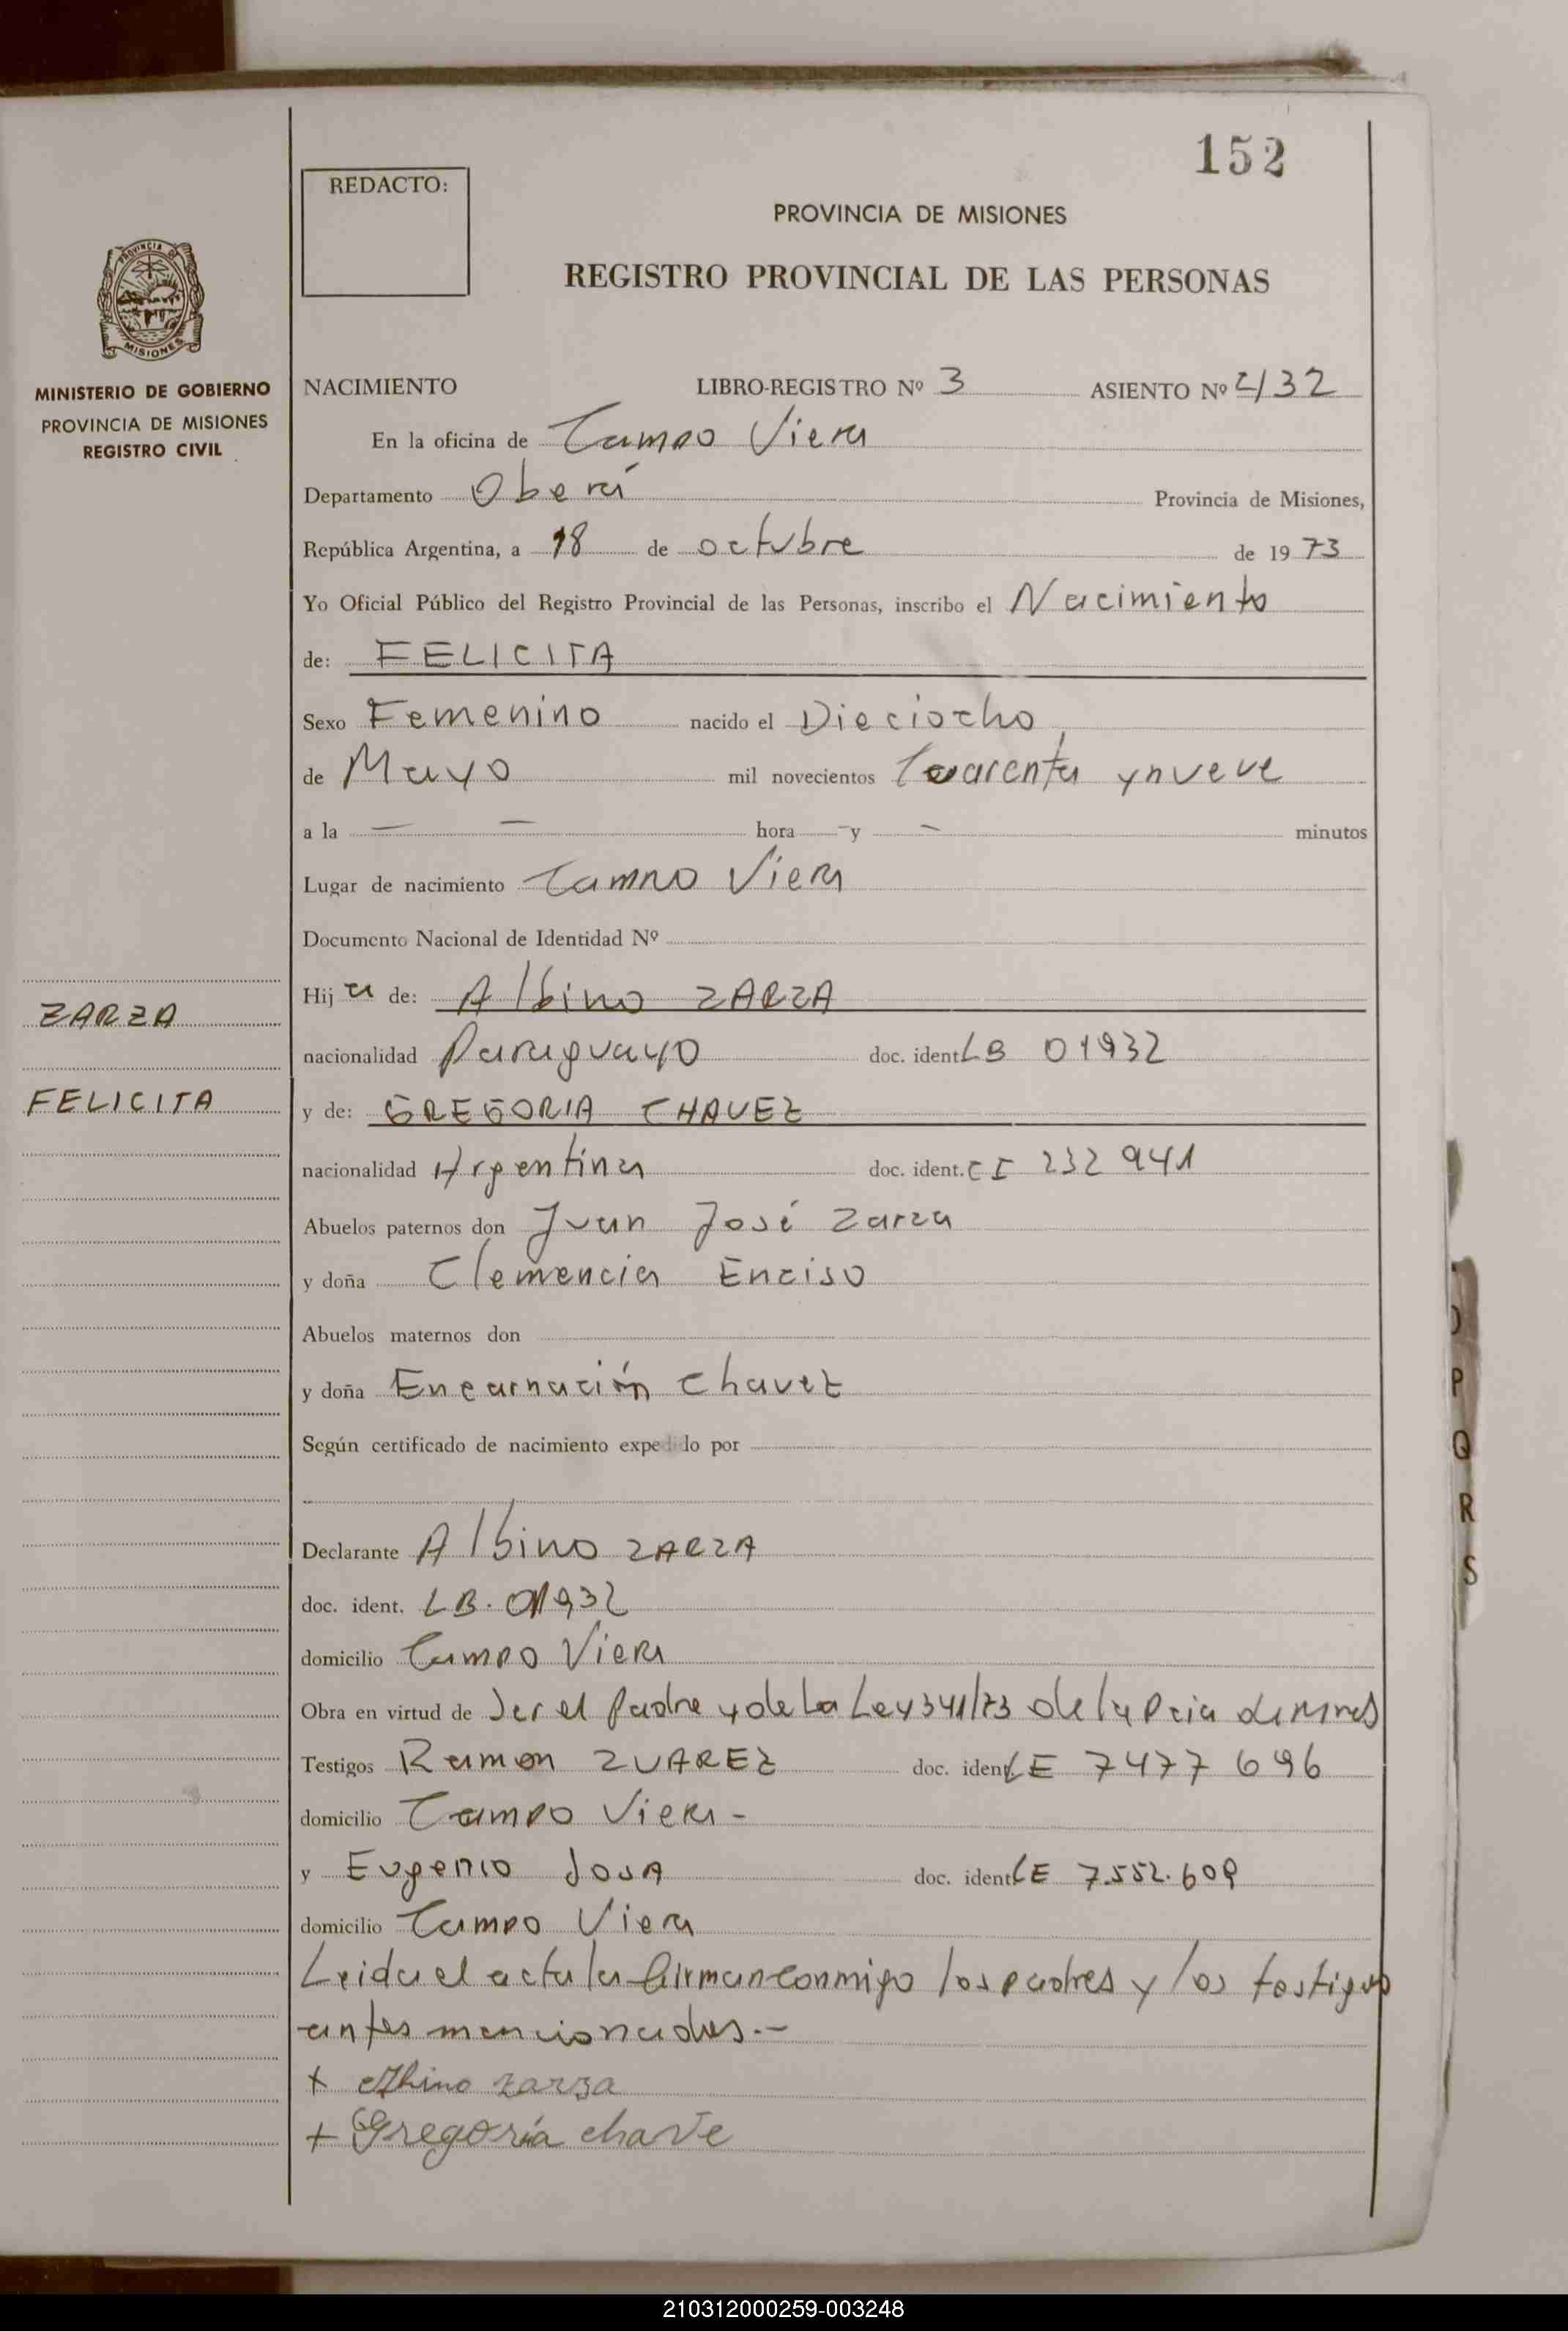 152
REDACTO:
PROVINCIA DE MISIONES
REGISTRO PROVINCIAL DE LAS PERSONAS
PROVINCIA DE
MISIONES
MINISTERIO DE GOBIERNO
PROVINCIA DE MISIONES
REGISTRO CIVIL
NACIMIENTO LIBRO-REGISTRO Nº 3 ASIENTO Nº 432
En la oficina de Campo Viera
Departamento Oberá Provincia de Misiones,
República Argentina, a 18 de octubre de 1973
Yo Oficial Público del Registro Provincial de las Personas, inscribo el Nacimiento
de: FELICITA
Sexo Femenino nacido el Dieciocho
de Mayo mil novecientos Cuarenta y nueve
a la — — hora - y - minutos
Lugar de nacimiento Campo Viera
Documento Nacional de Identidad Nº
Hija de: Albino ZARZA
ZARZA
nacionalidad Paraguayo doc. ident. LB 01932
FELICITA
y de: GREGORIA CHAVEZ
nacionalidad Argentina doc. ident. CI 232 941
Abuelos paternos don Juan José Zarza
y doña Clemencia Enciso
Abuelos maternos don
y doña Encarnación Chavez
Según certificado de nacimiento expedido por
Declarante Albino ZARZA
doc. ident. LB. 01932
domicilio Campo Viera
Obra en virtud de Ser el padre y de La Ley 341/73 de la Pcia de Mnes
Testigos Ramon ZUAREZ doc. ident. LE 7477 696
domicilio Campo Viera -
y Eugenio JOSA doc. ident. LE 7.552.609
domicilio Campo Viera
Leida el acta la firman conmigo los padres y los testigos
antes mencionados.-
+ Albino zarza
+ Gregoría chave
P
Q
R
S
210312000259-003248